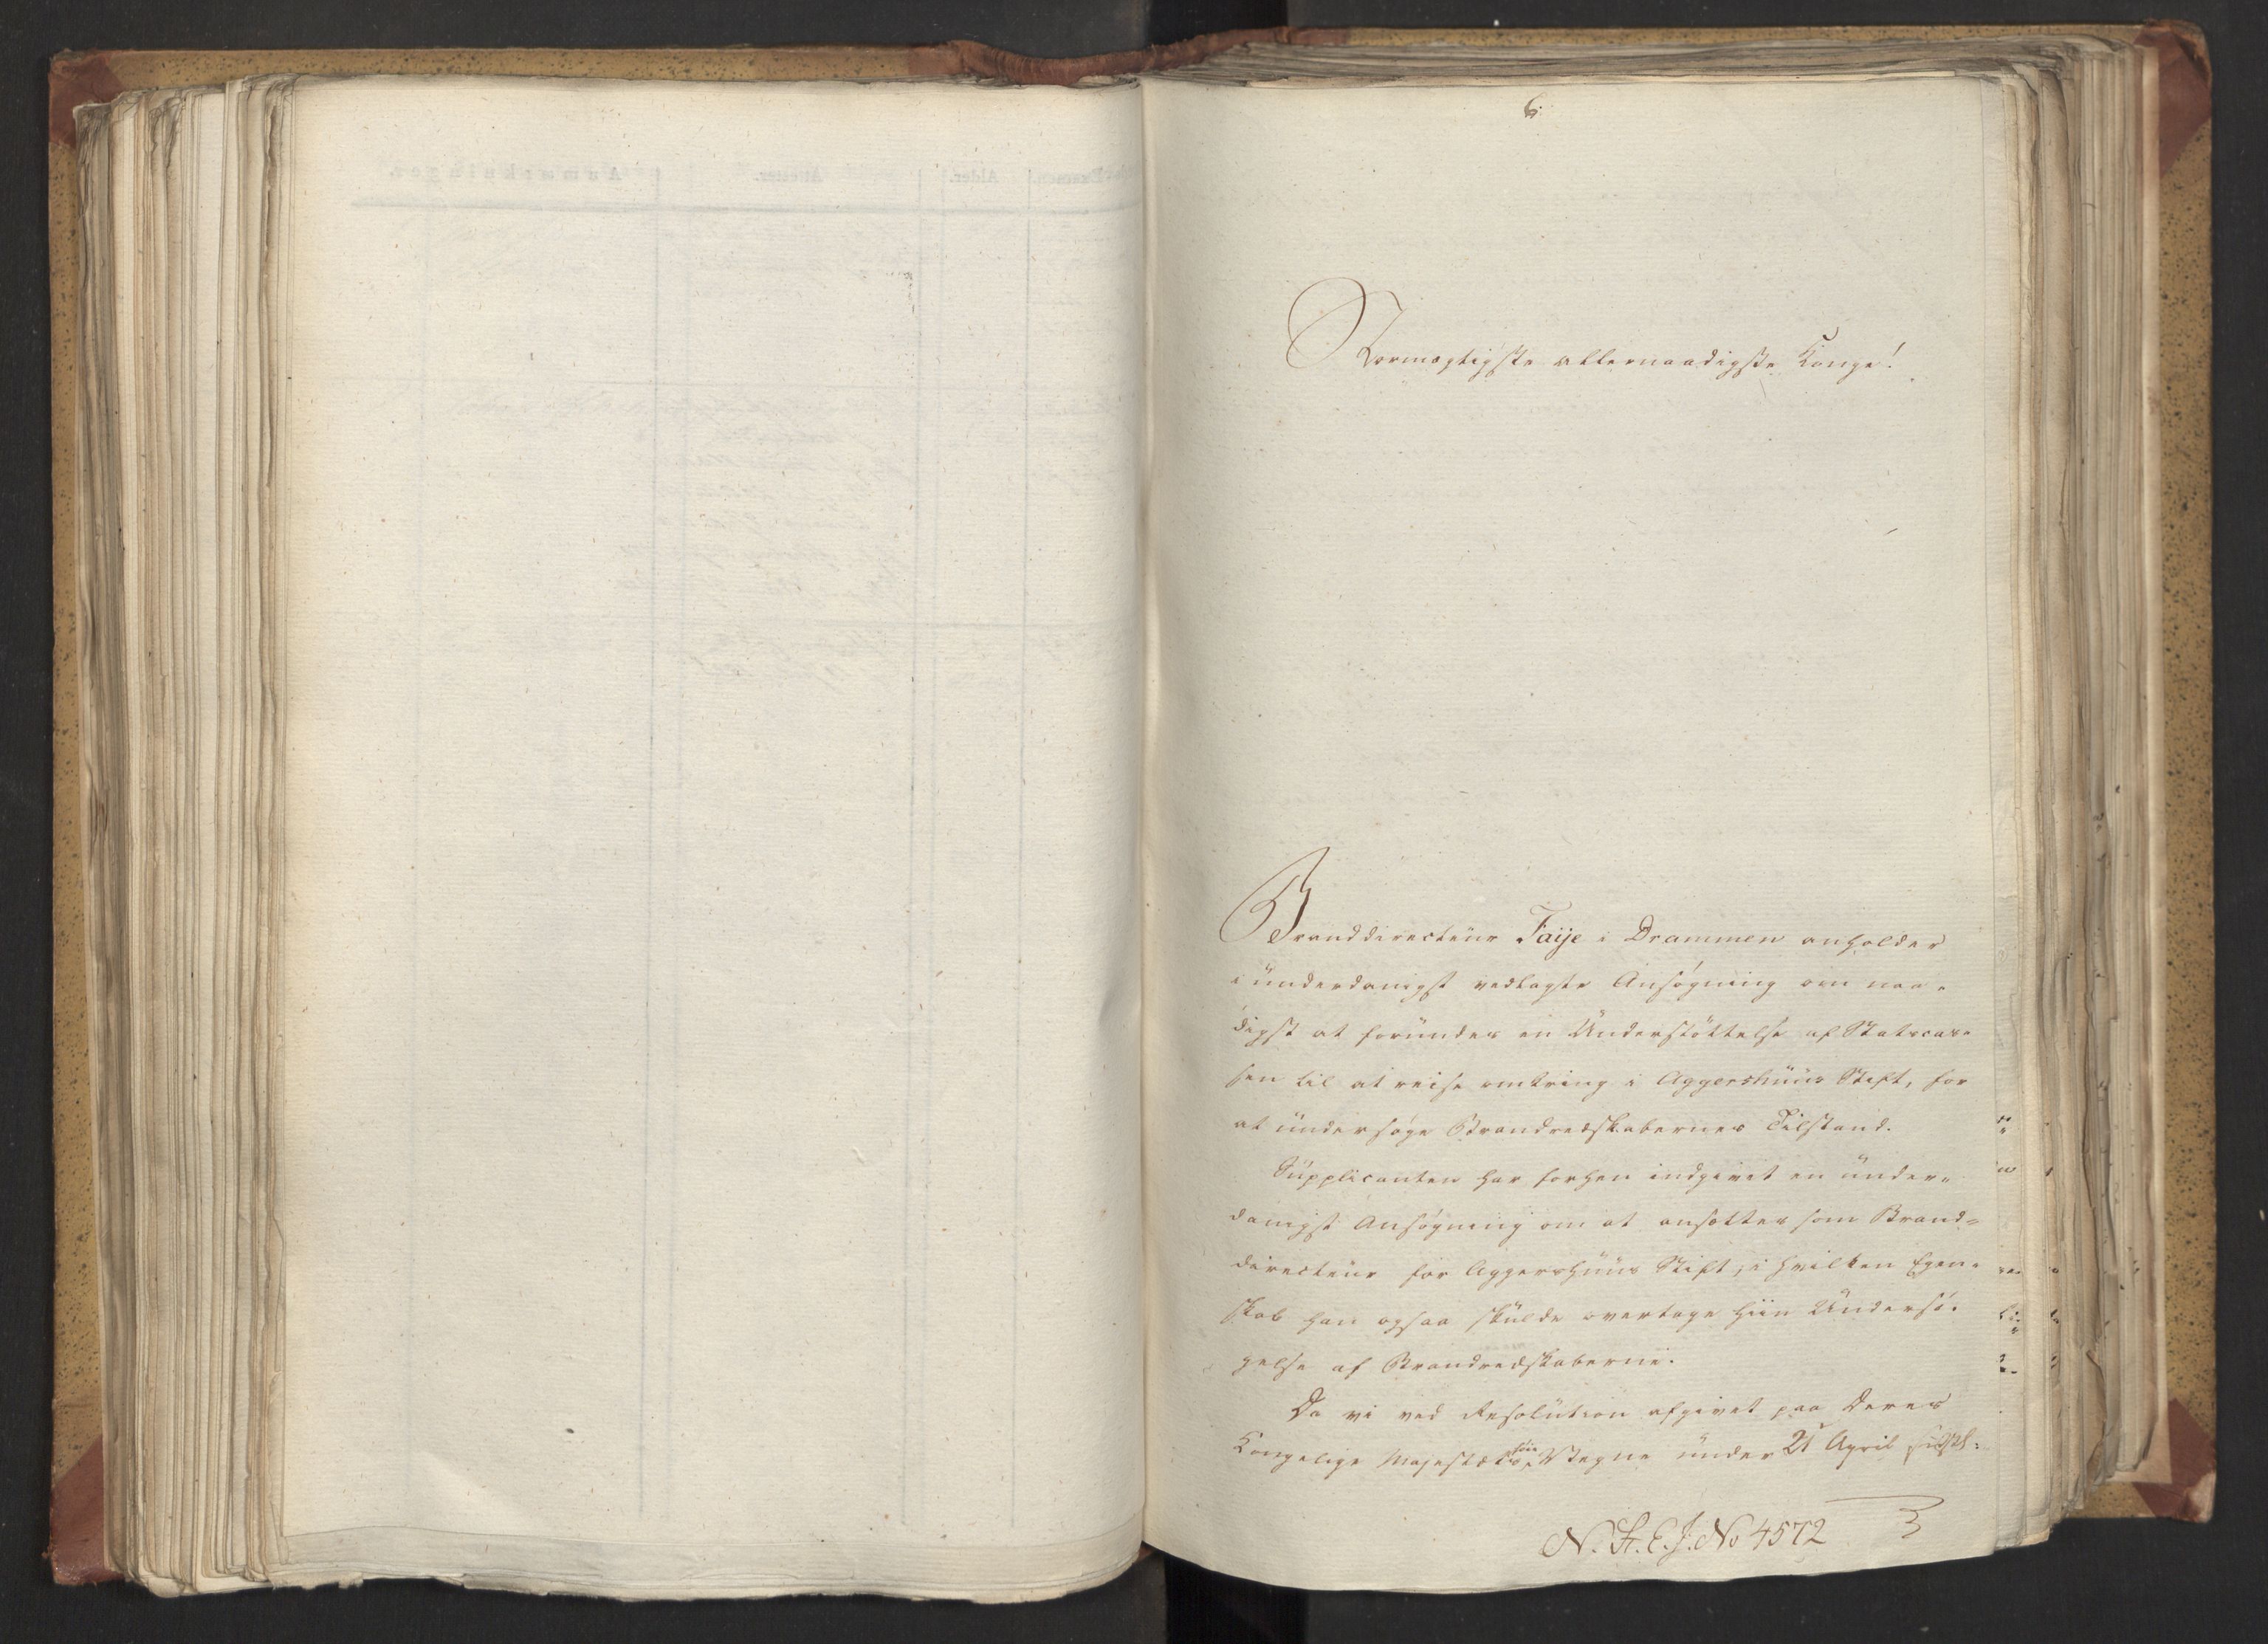 6.
Stormægtigste allernaadigste Konge!
Branddirecteur Faije i Drammen anholder
i underdanigst vedlagte Ansøgning om naa-
digst at forundes en Understøttelse af Statscas-
sen til at reise omkring i Aggershuus Stift, for
at undersøge Brandredskabernes Tilstand.
Supplicanten har forhen indgivet en under-
danigst Ansøgning om at ansættes som Brand-
directeur for Aggershuus Stift, i hvilken Egen-
skab han ogsaa skulde overtage hiin Undersø-
gelse af Brandredskaberne.
Da vi ved Resolution afgivet paa Deres
Kongelige Majestæts høie Vegne under 21 April sidstl:
N. St. E. J. No 4572
Anmærkninger.
Alder.